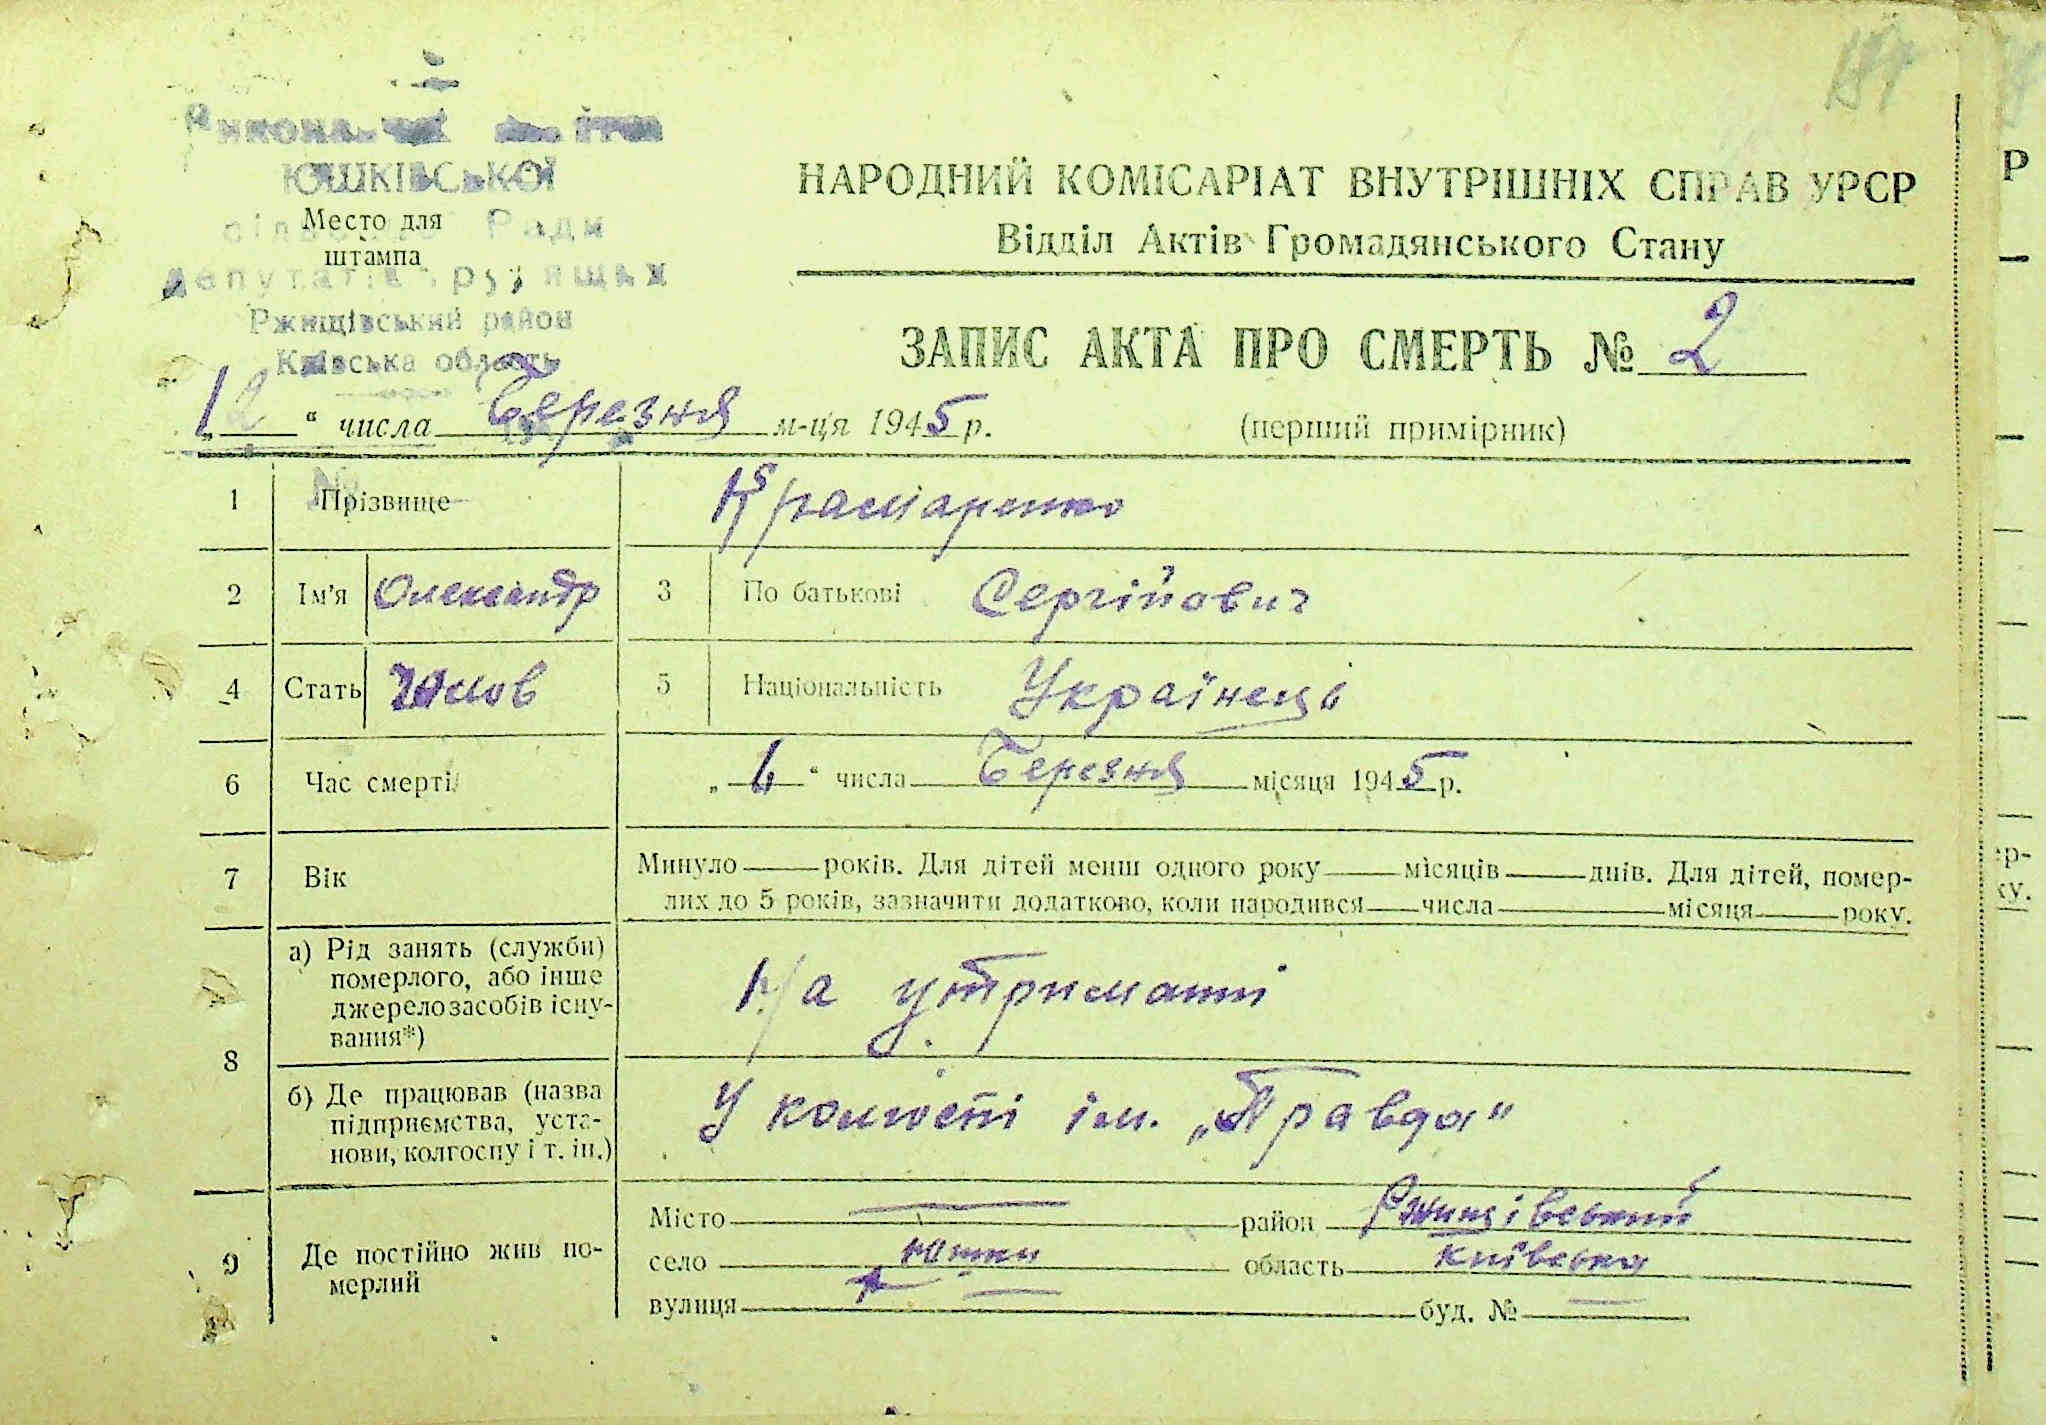 184
Виконавчий комітет
ЮШКІВСЬКОЇ
Место для
сільської Ради
штампа
депутатів трудящих
Ржищівський район
Київська область
НАРОДНИЙ КОМІСАРІАТ ВНУТРІШНІХ СПРАВ УРСР
Відділ Актів Громадянського Стану
ЗАПИС АКТА ПРО СМЕРТЬ № 2
„12“ числа Березня м-ця 1945 р.
(перший примірник)
№
1 Прізвище Крамаренко
2 Ім'я Олександр 3 По батькові Сергійович
4 Стать Чолов 5 Національність Українець
6 Час смерті „ “ числа Березня місяця 1945 р.
7 Вік Минуло років. Для дітей менш одного року місяців днів. Для дітей, помер-
лих до 5 років, зазначити додатково, коли народився числа місяця року.
8 а) Рід занять (служби)
померлого, або інше
джерело засобів існу-
вання*)
На утриманні
б) Де працював (назва
підприємства, уста-
нови, колгоспу і т. ін.)
У колгоспі ім. „Правда"
9 Де постійно жив по-
мерлий
Місто район Ржищівський
село Юшки область Київська
вулиця буд. №
Р
ер-
ку.